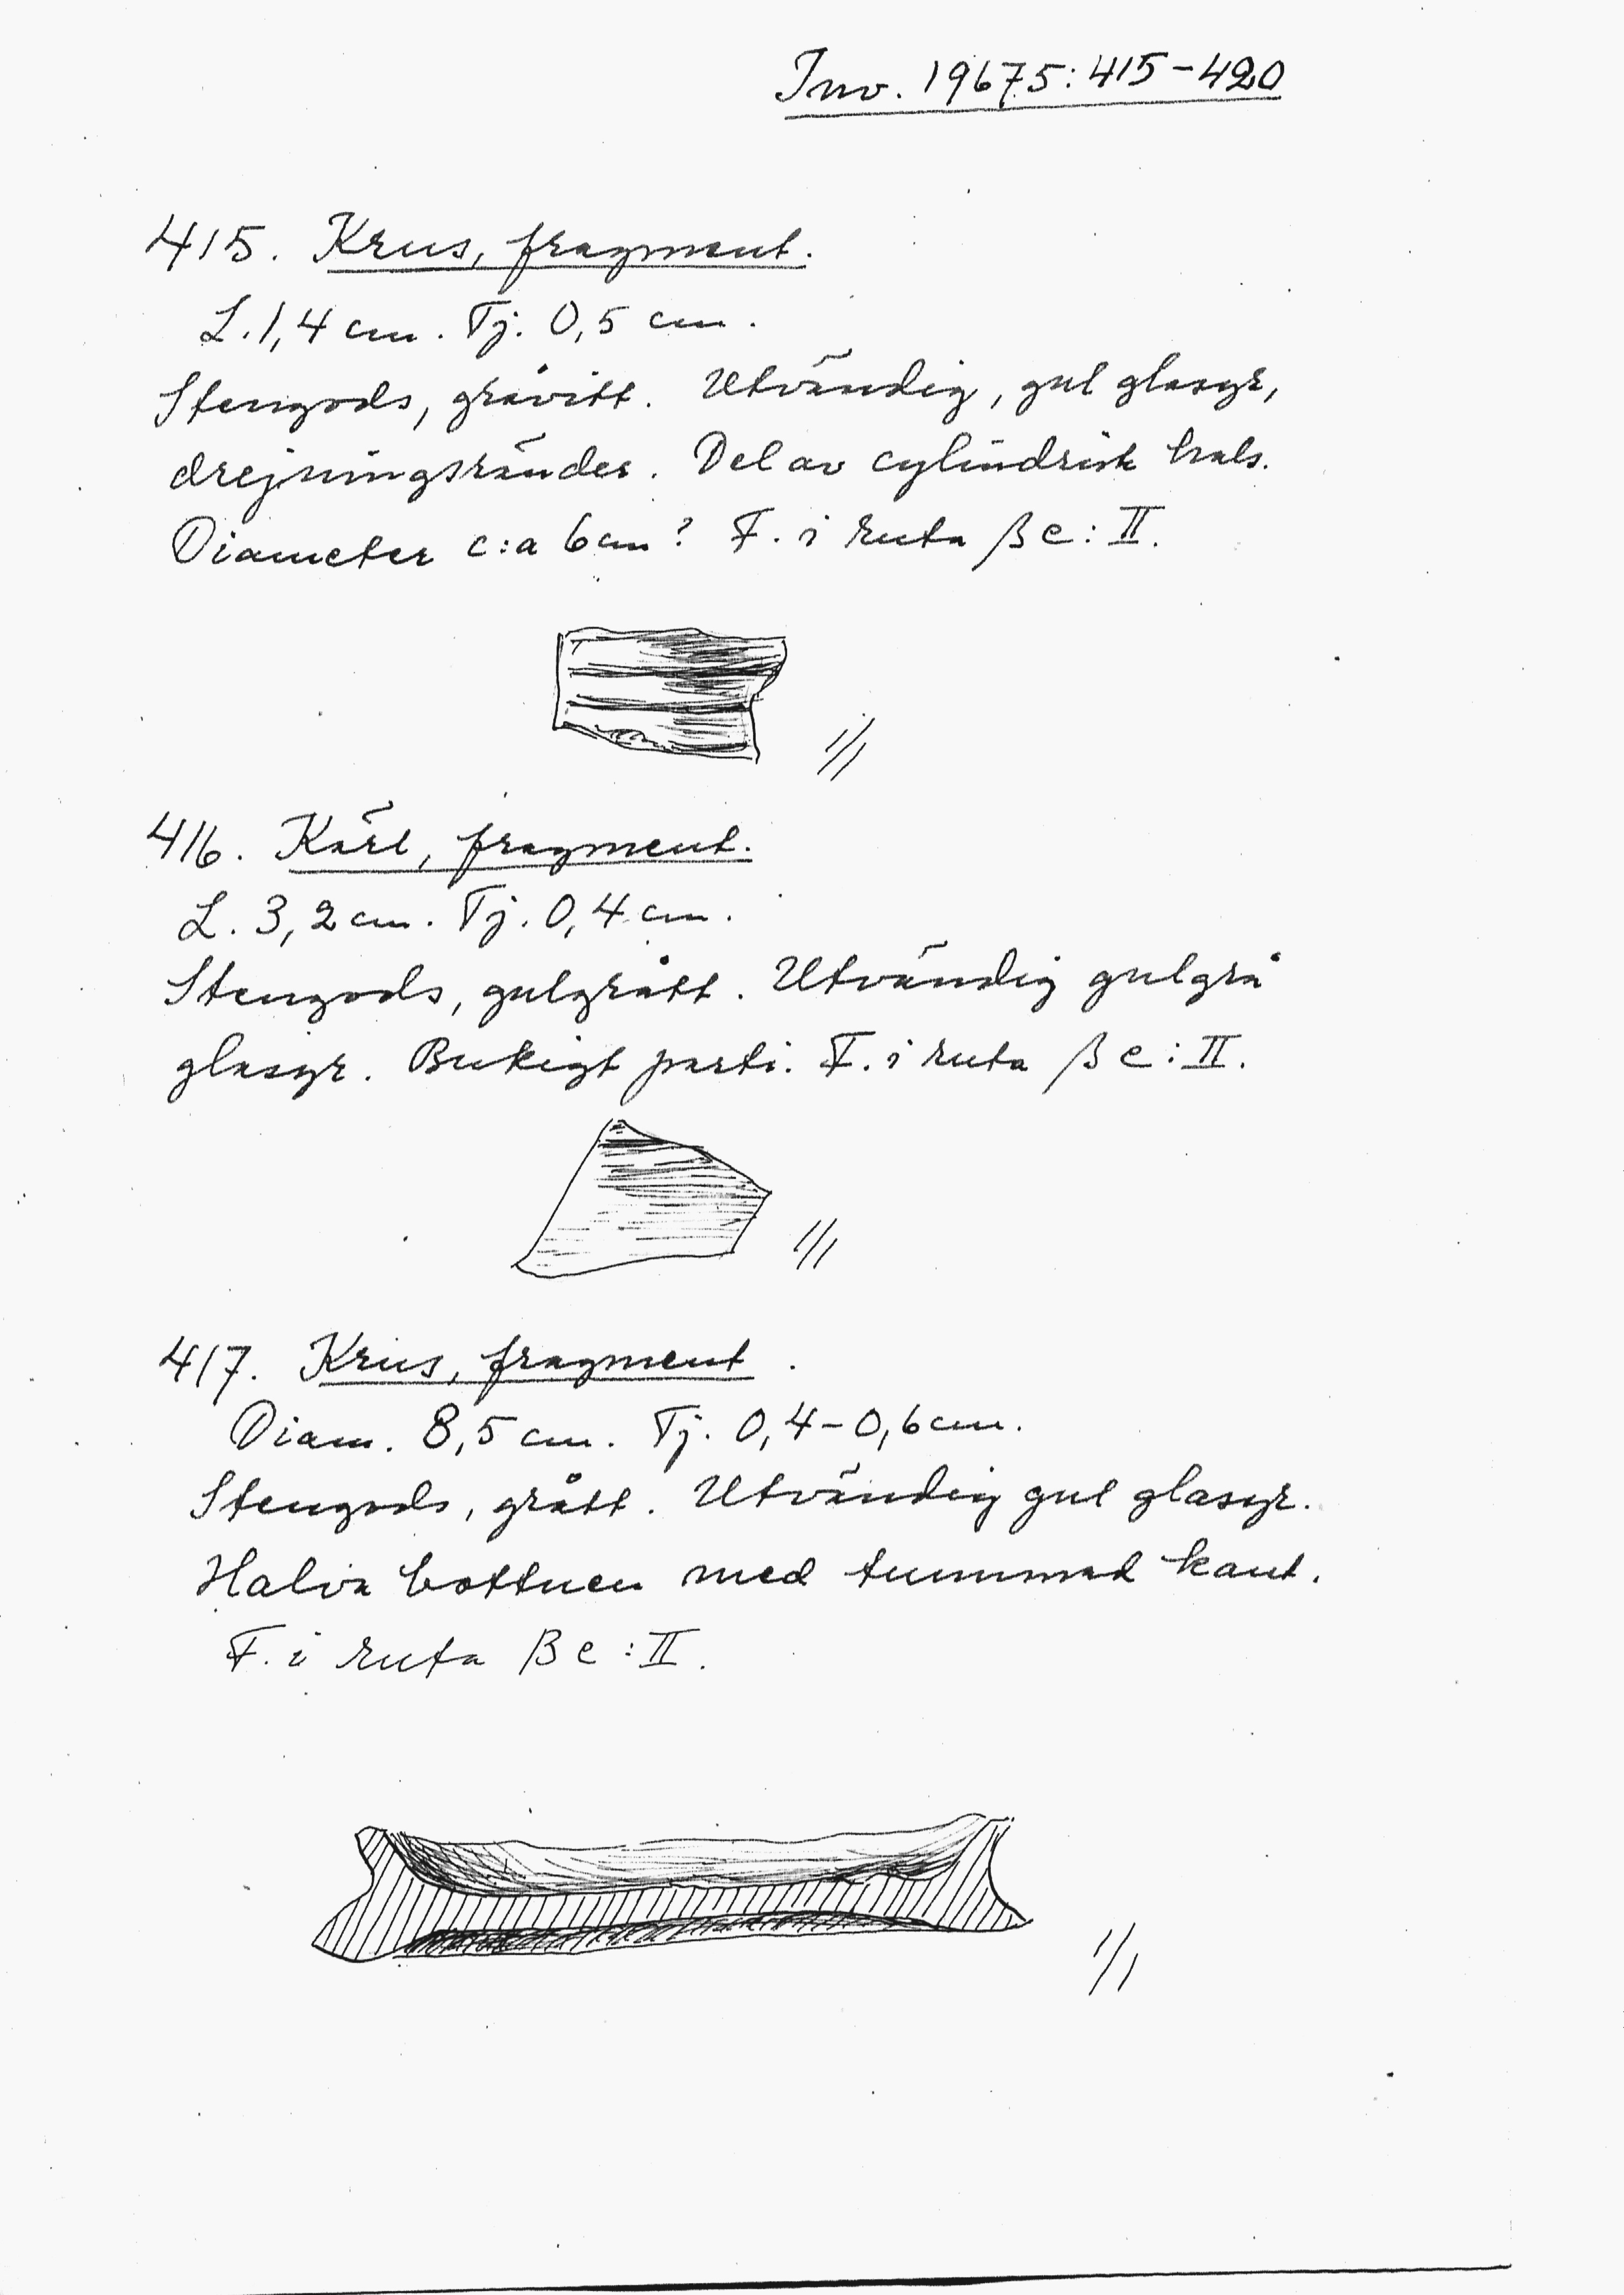 Inv. 19675:415-420
415. Krus, fragment.
L. 1,4 cm. Tj. 0,5 cm.
Stengods, gråvitt. Utvändig, gul glasyr,
drejningsränder. Del av cylindrisk hals.
Diameter c:a 6 cm? F. i ruta β c:II.
1/1
416. Kärl, fragment.
L. 3,2 cm. Tj. 0,4 cm.
Stengods, gulgrått. Utvändig gulgrå
glasyr. Bukigt parti. F. i ruta β c:II.
1/1
417. Krus, fragment.
Diam. 8,5 cm. Tj. 0,4-0,6 cm.
Stengods, grått. Utvändig gul glasyr.
Halva bottnen med tummad kant.
F. i ruta β c:II.
1/1